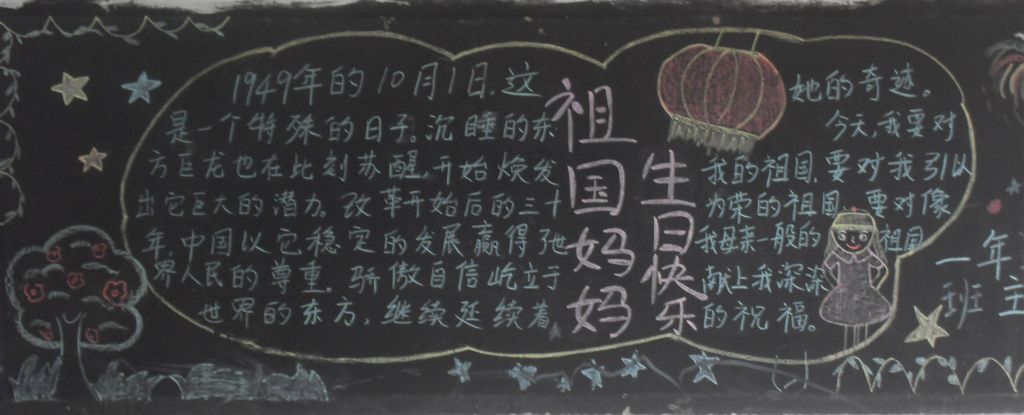 1949年的10月1日,这
是一个特殊的日子。沉睡的东
方巨龙也在此刻苏醒,开始焕发
出它巨大的潜力。改革开始后的三十
年中国以它稳定的发展赢得了他
界人民的尊重。骄傲自信屹立于
世界的东方,继续延续着
祖国妈妈
生日快乐
她的奇迹。
今天,我要对
我的祖国,要对我引以
为荣的祖国,要对像
我母亲一般的祖国
献上我深深
的祝福。
一年
班主